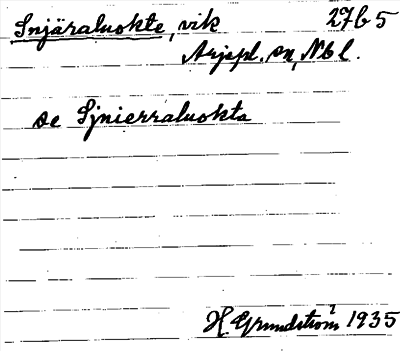 Snjäraluokte, vik 27b5
Arjepl. sn, Nbl.
se Sjnierraluokta
H Grundström 1935